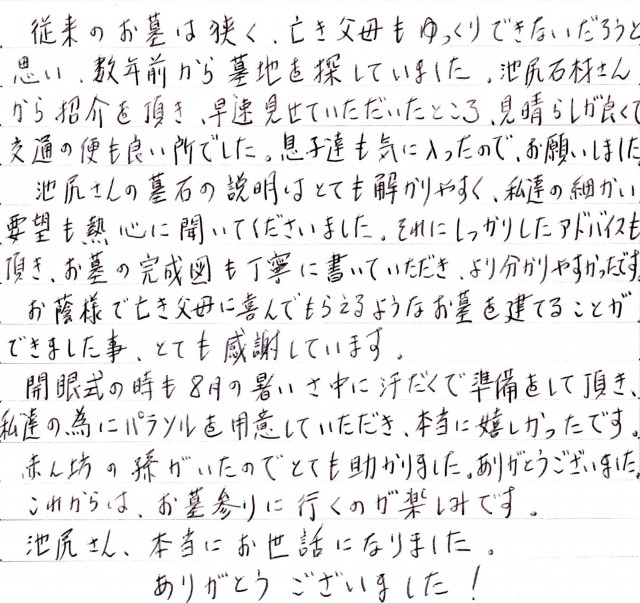 従来のお墓は狭く、亡き父母もゆっくりできないだろうと
思い、数年前から墓地を探していました。池尻石材さん
から招介を頂き、早速見せていただいたところ、見晴らしが良くて
交通の便も良い所でした。息子達も気に入ったので、お願いしました
池尻さんの墓石の説明はとても解かりやすく、私達の細かい
要望も熱心に聞いてくださいました。それにしっかりしたアドバイスも
頂き、お墓の完成図も丁寧に書いていただき、より分かりやすかったです
お蔭様で亡き父母に喜んでもらえるようなお墓を建てることが
できました事、とても感謝しています。
開眼式の時も8月の暑いさ中に汗だくで準備をして頂き、
私達の為にパラソルを用意していただき、本当に嬉しかったです。
赤ん坊の孫がいたのでとても助かりました。ありがとうございました。
これからは、お墓参りに行くのが楽しみです。
池尻さん、本当にお世話になりました。
ありがとうございました!